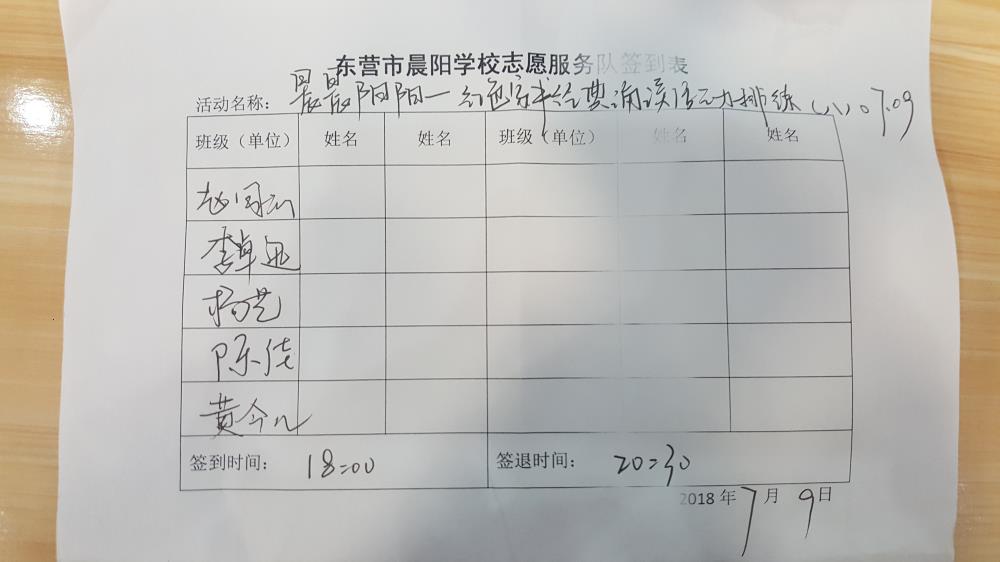 东营市晨阳学校志愿服务队签到表
活动名称： 晨晨阳阳一红色家书经典诵读活动排练 07.09
班级（单位） 姓名 姓名 班级（单位） 姓名 姓名
李卓迅
杨艺
陈佳
黄今儿
签到时间： 18:00 签退时间： 20:30
2018年7月9日